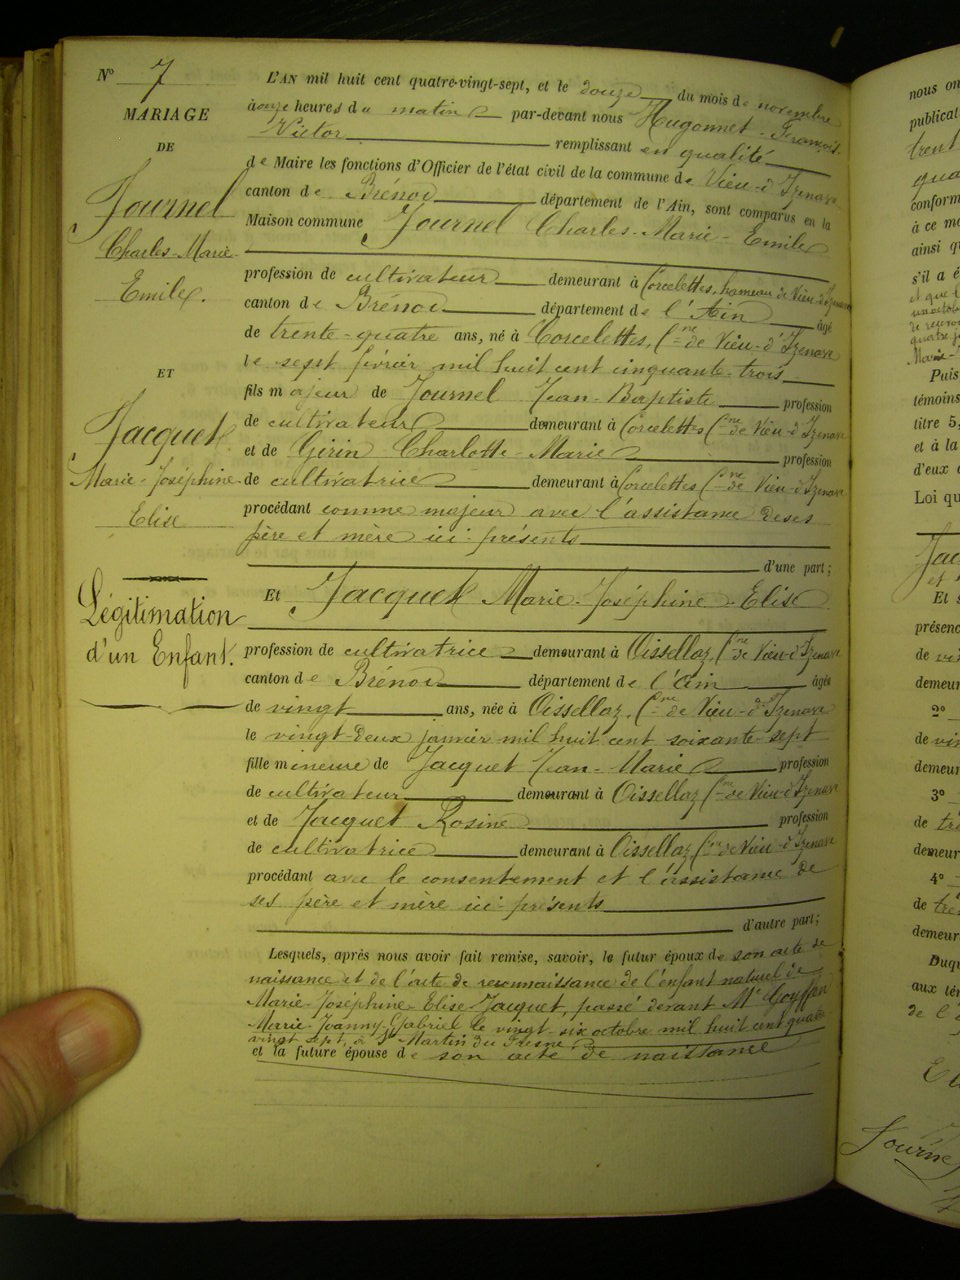 N° 7
MARIAGE
DE
Journel
Charles-Marie-
Emile.
ET
Jacquet
Marie-Joséphine-
Elise
Légitimation
d'un Enfant.
L'AN mil huit cent quatre-vingt-sept, et le douze du mois de novembre
à onze heures du matin par-devant nous Hugonnet-François-
Victor remplissant en qualité
de Maire les fonctions d'Officier de l'état civil de la commune de Vieu-d'Izenave
canton de Brénod département de l'Ain, sont comparus en la
Maison commune Journel Charles-Marie-Emile
profession de cultivateur demeurant à Corcelettes, hameau de Vieu-d'Izenave
canton de Brénod département de l'Ain âgé
de trente-quatre ans, né à Corcelettes, Cne de Vieu-d'Izenave
le sept février mil huit cent cinquante-trois
fils majeur de Journel Jean-Baptiste profession
de cultivateur demeurant à Corcelettes Cne de Vieu-d'Izenave
et de Girin Charlotte-Marie profession
de cultivatrice demeurant à Corcelettes Cne de Vieu-d'Izenave
procédant comme majeur avec l'assistance de ses
père et mère ici-présents
d'une part;
Et Jacquet Marie-Joséphine-Elise
profession de cultivatrice demeurant à Oissellaz, Cne de Vieu-d'Izenave
canton de Brénod département de l'Ain âgée
de vingt ans, née à Oissellaz, Cne de Vieu-d'Izenave
le vingt-deux janvier mil huit cent soixante-sept
fille mineure de Jacquet Jean-Marie profession
de cultivateur demeurant à Oissellaz Cne de Vieu-d'Izenave
et de Jacquet Rosine profession
de cultivatrice demeurant à Oissellaz Cne de Vieu-d'Izenave
procédant avec le consentement et l'assistance de
ses père et mère ici-présents
d'autre part;
Lesquels, après nous avoir fait remise, savoir, le futur époux de son acte de
naissance et de l'acte de reconnaissance de l'enfant naturel de
Marie-Joséphine-Elise Jacquet, passé devant Me
Marie-Joanny-Gabriel le vingt-six octobre mil huit cent quatre
vingt sept, à St Martin du Fresne
et la future épouse de son acte de naissance
nous on
publicat
trent
qua
conform
à ce mo
ainsi qu
s'il a é
et que l
Marie-
Puis
témoins
titre 5,
et à la
d'eux
Loi qu
Jac
et
Et s
présenc
de vi
demeur
2°
de vin
demeur
3°
de tre
demeur
4°
de tre
demeur
Duqu
aux tém
de l'
Journe